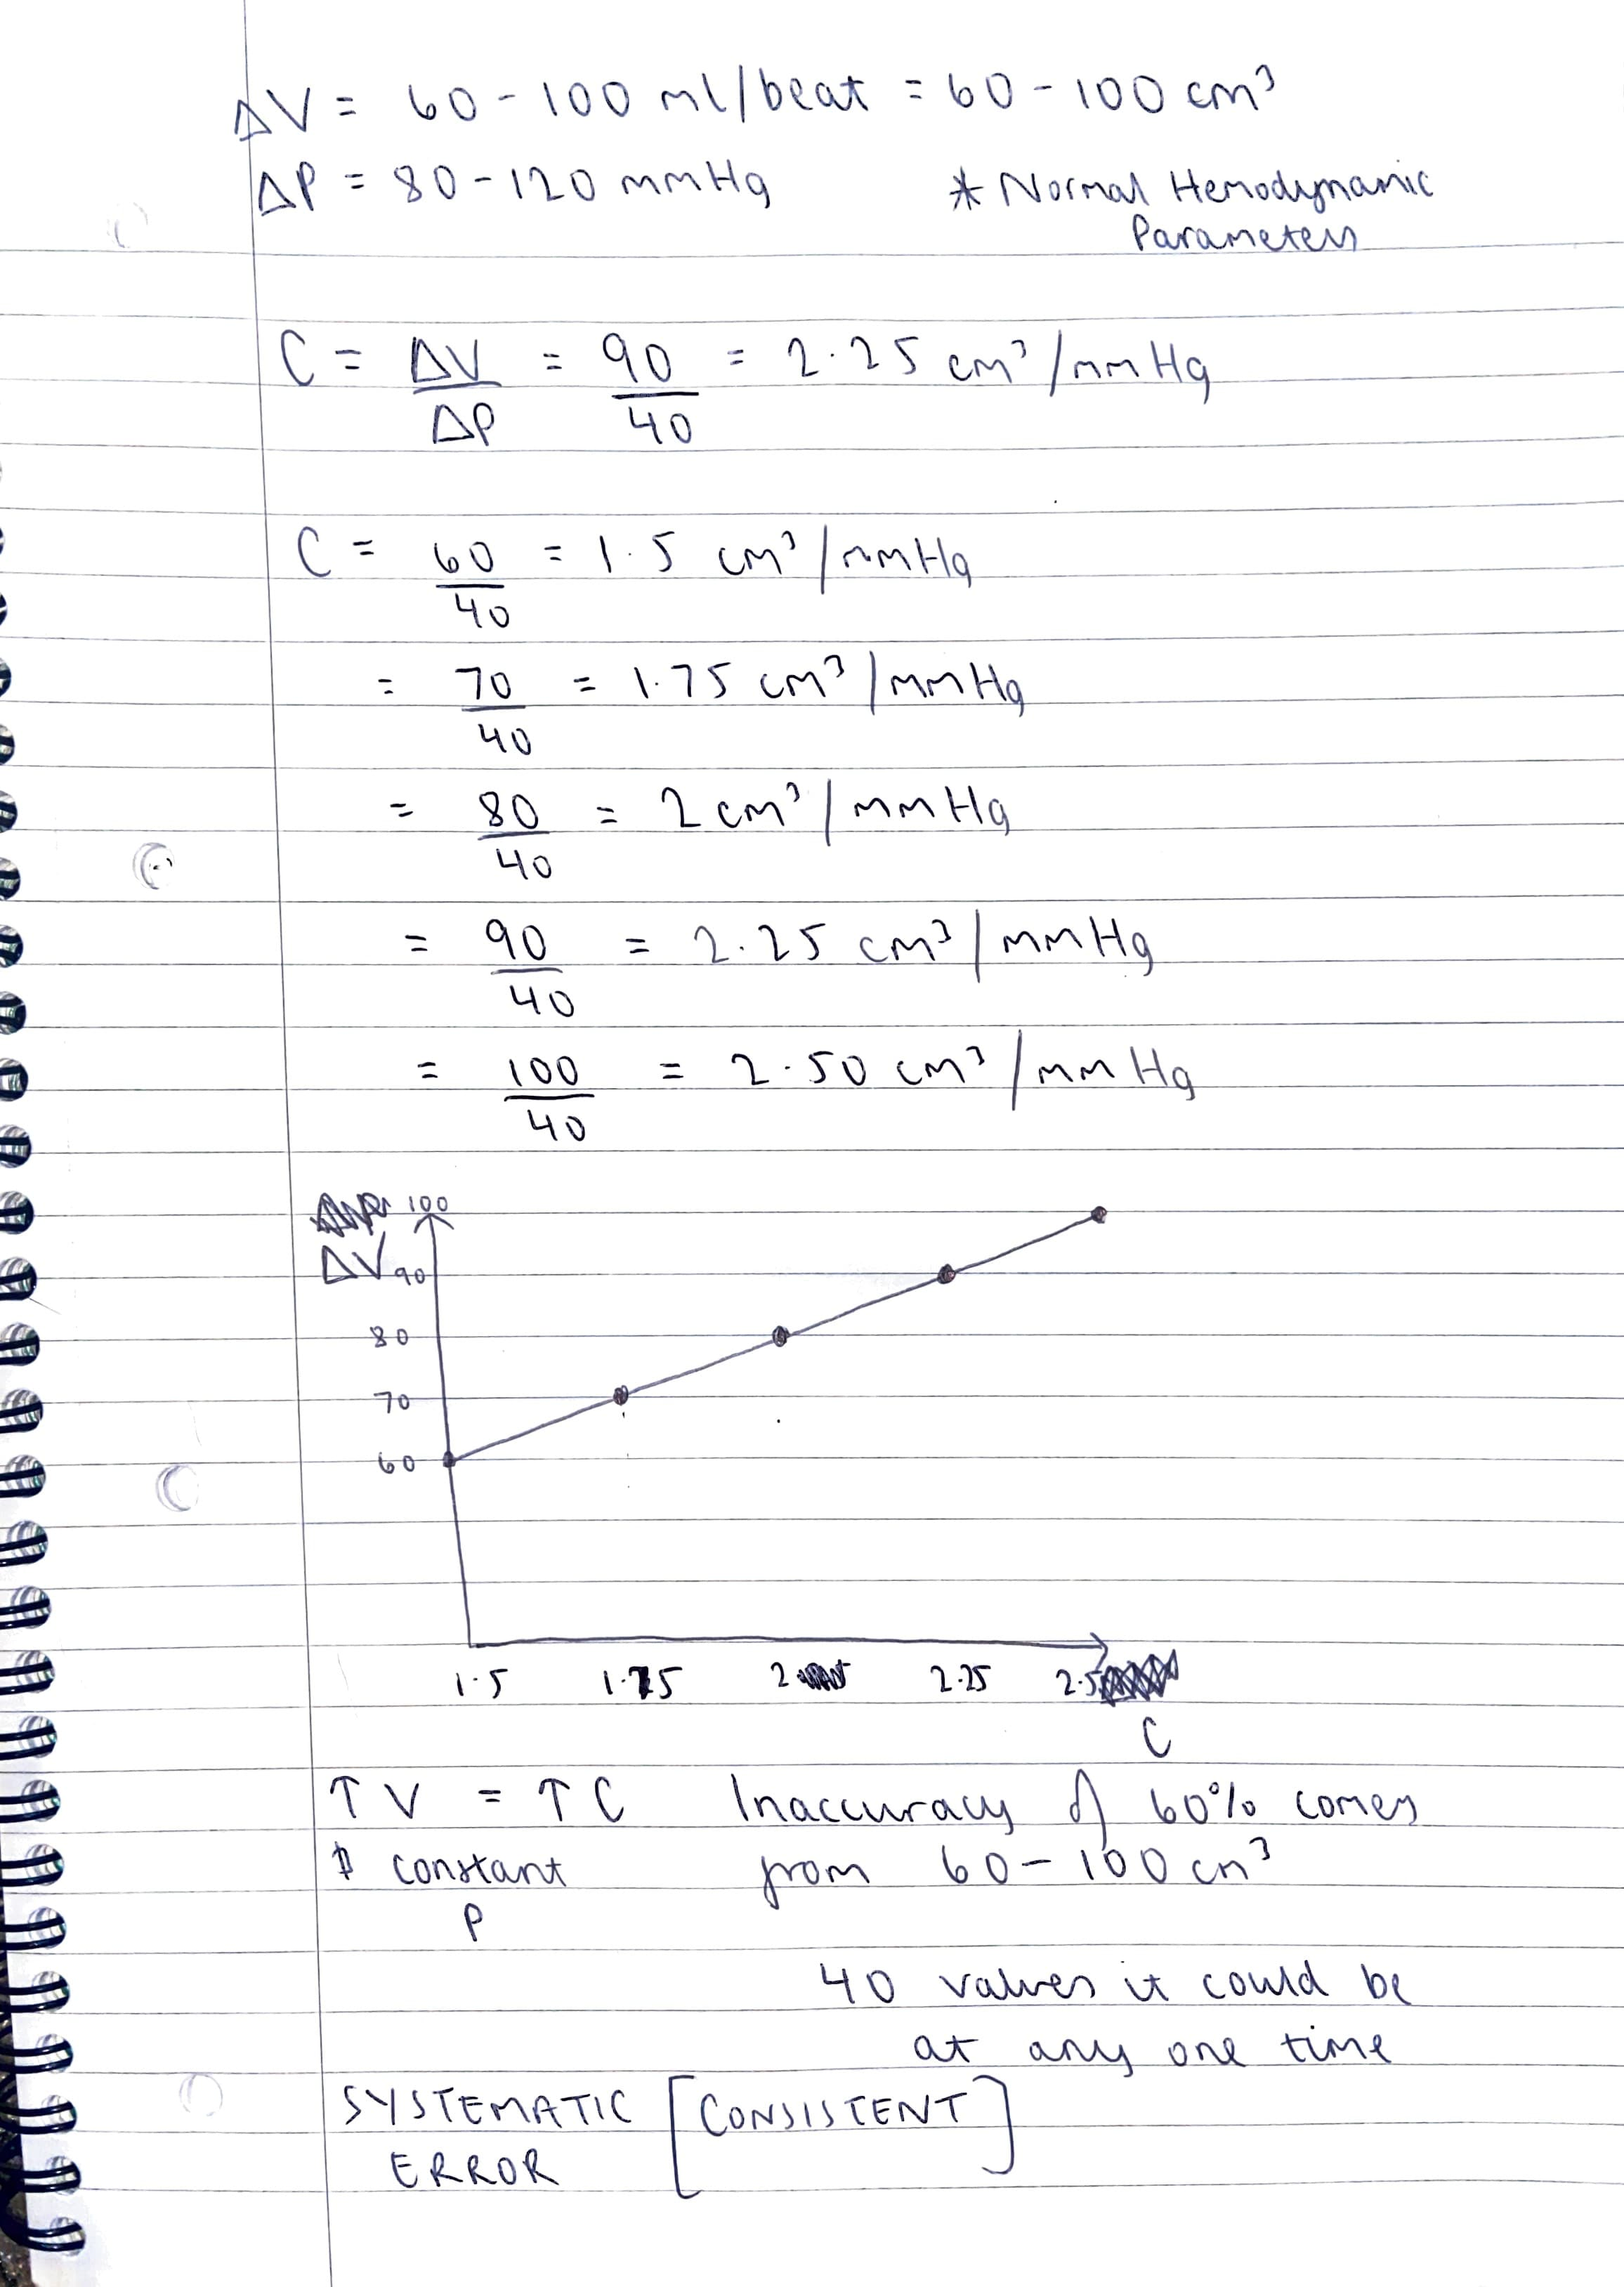 ΔV = 60 - 100 ml/beat = 60 - 100 cm³
ΔP = 80 - 120 mmHg * Normal Hemodynamic
Parameters
C = ΔV/ΔP = 90/40 = 2.25 cm³/mmHg
C = 60/40 = 1.5 cm³/mmHg
= 70/40 = 1.75 cm³/mmHg
= 80/40 = 2 cm³/mmHg
= 90/40 = 2.25 cm³/mmHg
= 100/40 = 2.50 cm³/mmHg
100
ΔV 90
80
70
60
1.5 1.75 2 2.25 2.5
C
↑ V = ↑ C Inaccuracy of 60% comes
constant from 60 - 100 cm³
P
40 values it could be
at any one time
SYSTEMATIC [CONSISTENT]
ERROR